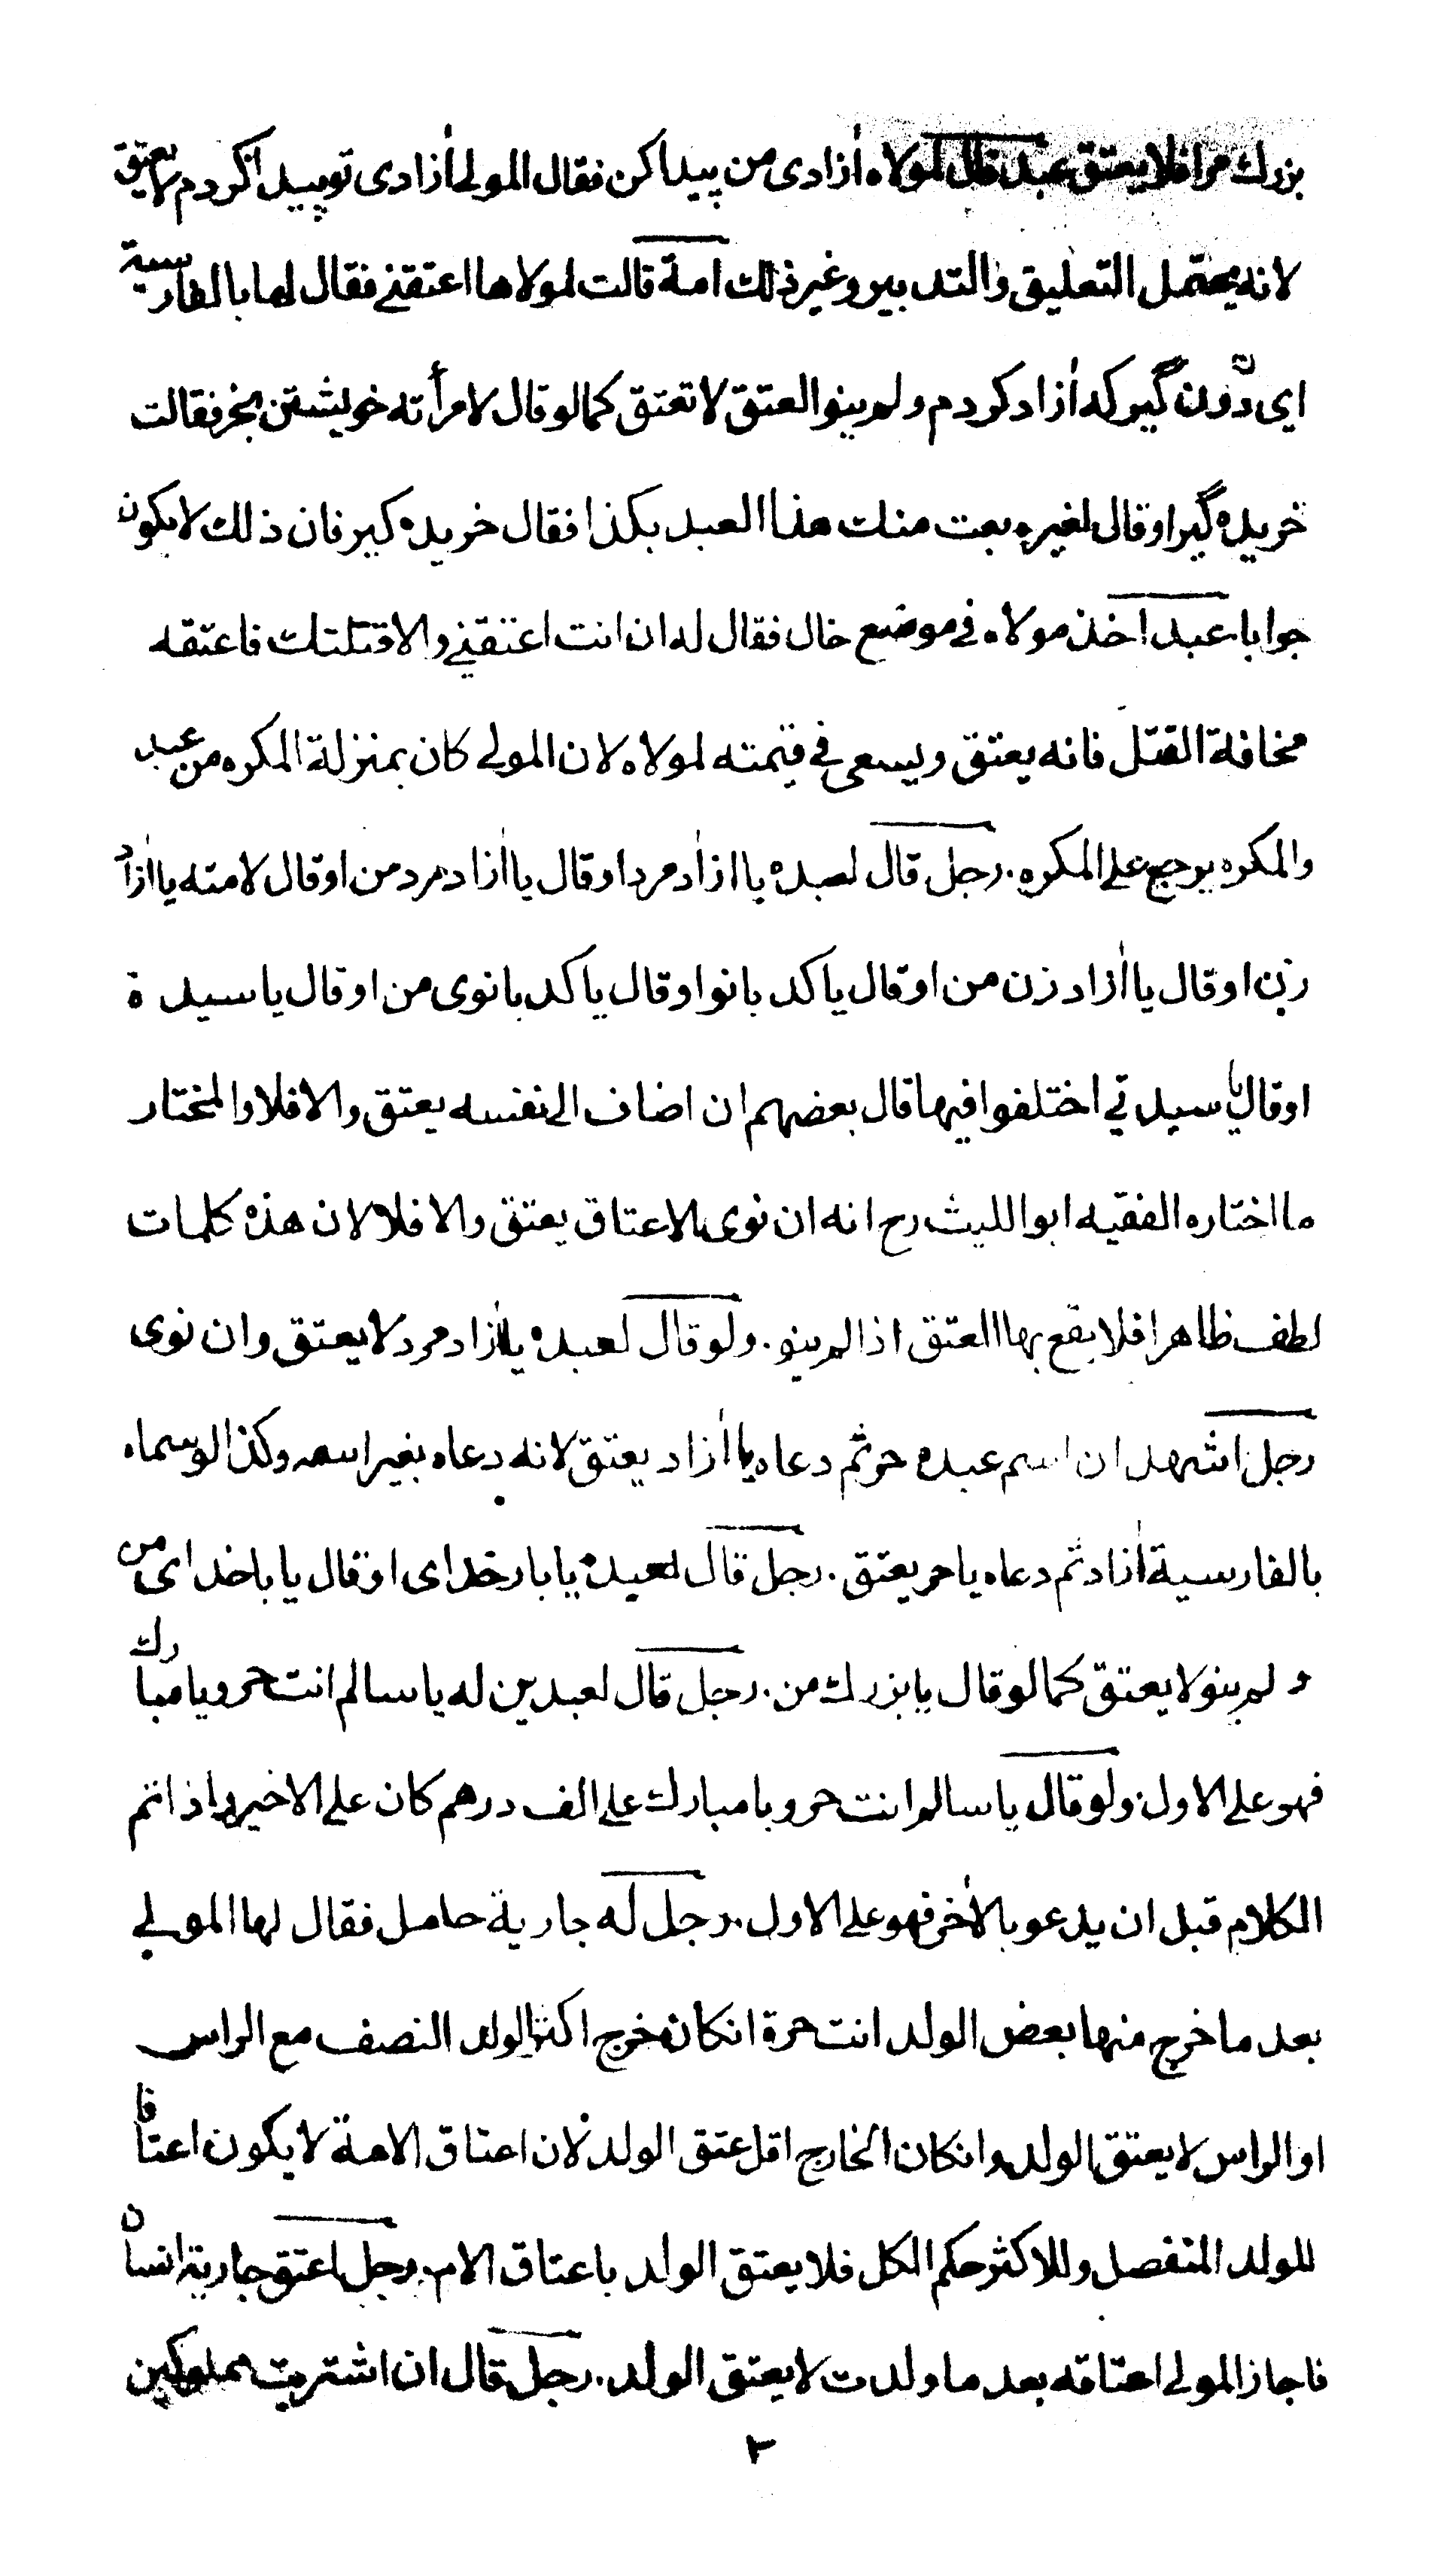 بزرك مرا فلا يعتق عبد قال لمولاه اٰزادى من پيدا كن فقال المولى اٰزادى تو پيدا كردم لا يعتق
لانه يحتمل التعليق والتدبير وغير ذلك امة قالت لمولاها اعتقنى فقال لها بالفارسية
اى دون گير كه اٰزاد كردم ولم ينو العتق لا تعتق كما لو قال لامرأته خويشتن بخر فقالت
خريده گير او قال لغيره بعت منك هذا العبد بكذا فقال خريده كير فان ذلك لا يكون
جوابا عبد اخذ مولاه فى موضع خال فقال له ان انت اعتقتنى والا قتلتك فاعتقه
مخافة القتل فانه يعتق ويسعى فى قيمته لمولاه لان المولى كان بمنزلة المكره من عبد
والمكره يرجع على المكره . رجل قال لعبده يا ازاد مرد او قال يا اٰزاد مرد من او قال لامته يا اٰزاد
زن او قال يا اٰزاد زن من او قال يا كد بانو او قال يا كد بانوى من او قال يا سيدة
او قال يا سيدتى اختلفوا فيها قال بعضهم ان اضاف الى نفسه يعتق والا فلا والمختار
ما اختاره الفقيه ابو الليث رح انه ان نوى الاعتاق يعتق والا فلا لان هذه كلمات
لطف ظاهرا فلا يقع بها العتق اذا لم ينو . ولو قال لعبده يا اٰزاد مرد لا يعتق وان نوى
رجل اشهد ان اسم عبده حر ثم دعاه يا اٰزاد يعتق لانه دعاه بغير اسمه وكذا لو سماه
بالفارسية اٰزاد ثم دعاه يا حر يعتق . رجل قال لعبده يا بار خداى او قال يا با خداى من
و لم ينو لا يعتق كما لو قال يا بزرك من . رجل قال لعبدين له يا سالم انت حر ويا مبارك
فهو على الاول . ولو قال يا سالم انت حر و يا مبارك على الف درهم كان على الاخير واذا تم
الكلام قبل ان يدعو بالاٰخر فهو على الاول . رجل له جارية حامل فقال لها المولى
بعد ما خرج منها بعض الولد انت حرة انكان خرج اكثر الولد النصف مع الراس
او الراس لا يعتق الولد وانكان الخارج اقل عتق الولد لان اعتاق الامة لا يكون اعتاقا
للولد المنفصل وللاكثر حكم الكل فلا يعتق الولد باعتاق الام . رجل اعتق جارية انسان
فاجاز المولى اعتاقه بعد ما ولدت لا يعتق الولد . رجل قال ان اشتريت مملوكين
٢